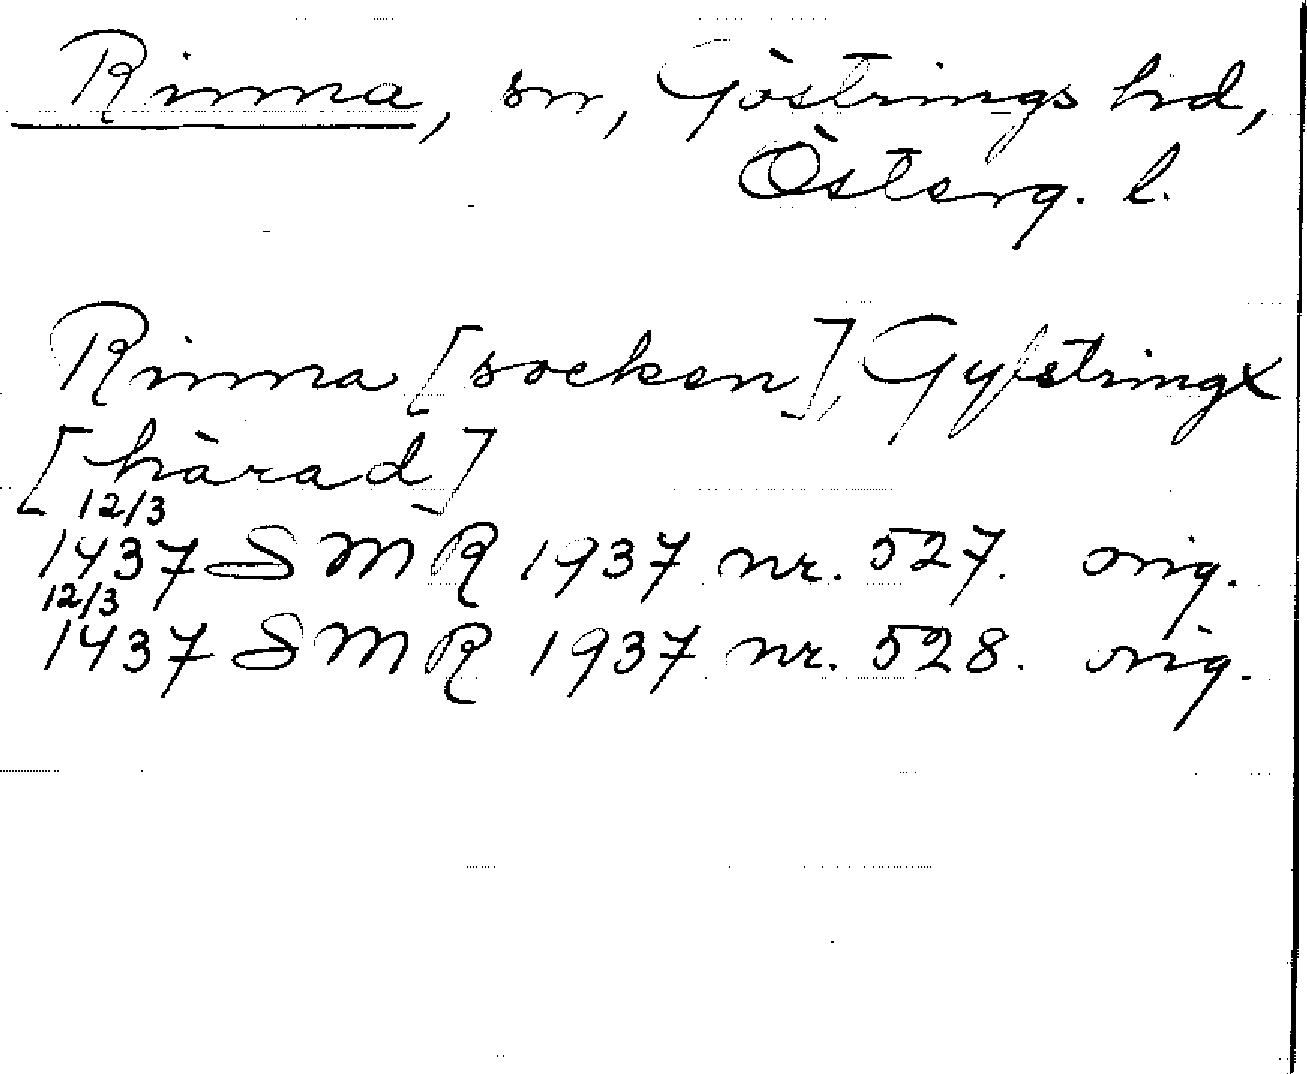 Rinna, sn, Göstrings hd,
Österg. l.
Rinna [socken], Gyfstringx
[härad]
12/3
1437 SMR 1937 nr. 527. orig.
12/3
1437 SMR 1937 nr. 528. orig.